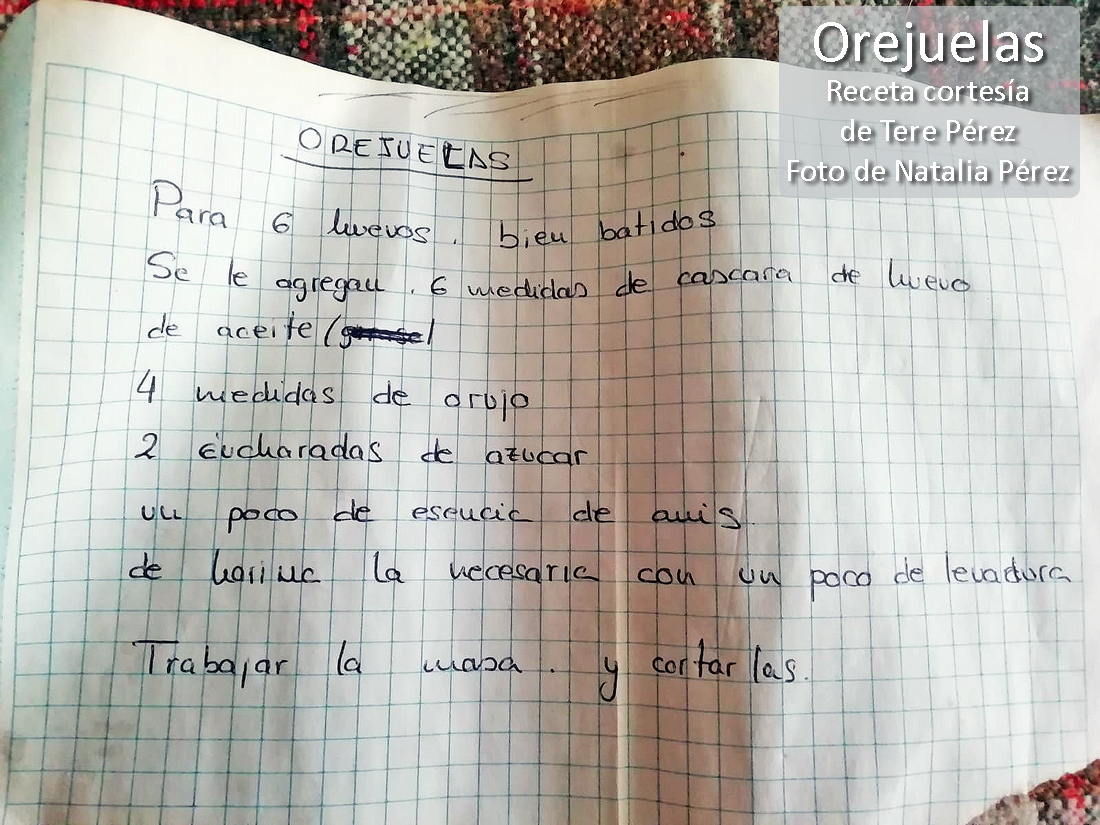 Orejuelas
Receta cortesía
de Tere Pérez
Foto de Natalia Pérez
OREJUELAS
Para 6 huevos. bien batidos
Se le agregan. 6 medidas de cascara de huevo
de aceite (
4 medidas de orujo
2 cucharadas de azucar
un poco de esencia de anis.
de harina la necesaria con un poco de levadura
Trabajar la masa. y cortar las.